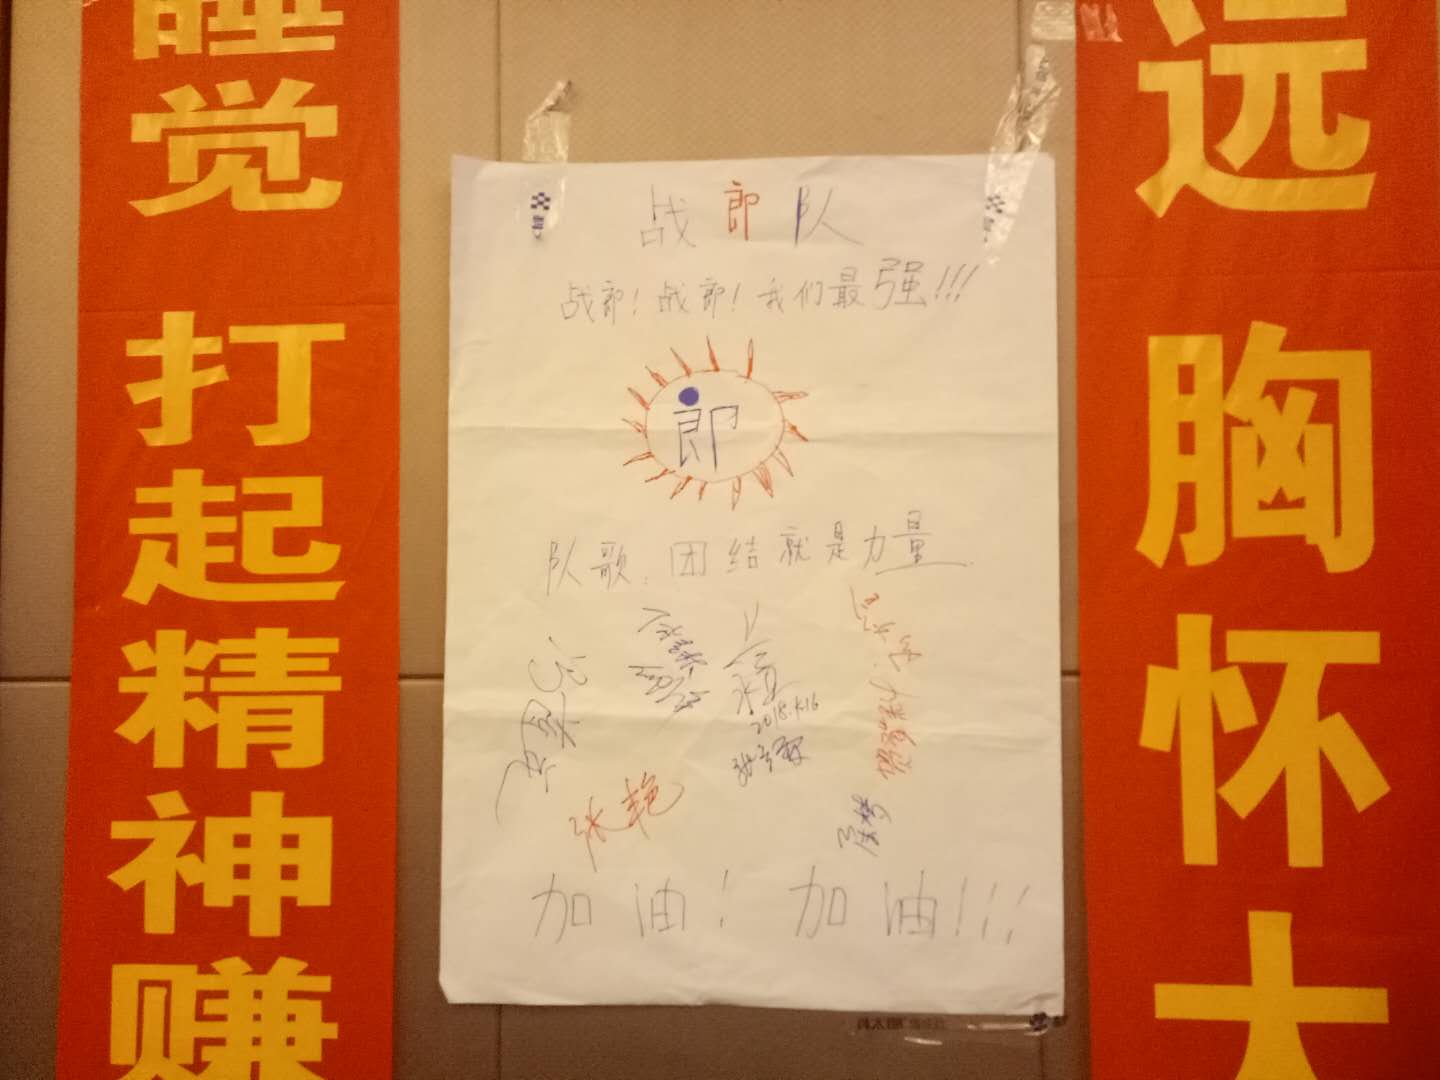 睡觉 打起精神赚
战郎队
战郎！战郎！我们最强!!!
郎
队歌：团结就是力量
2018.1.16
张艳
加油！ 加油!!!
远 胸怀大